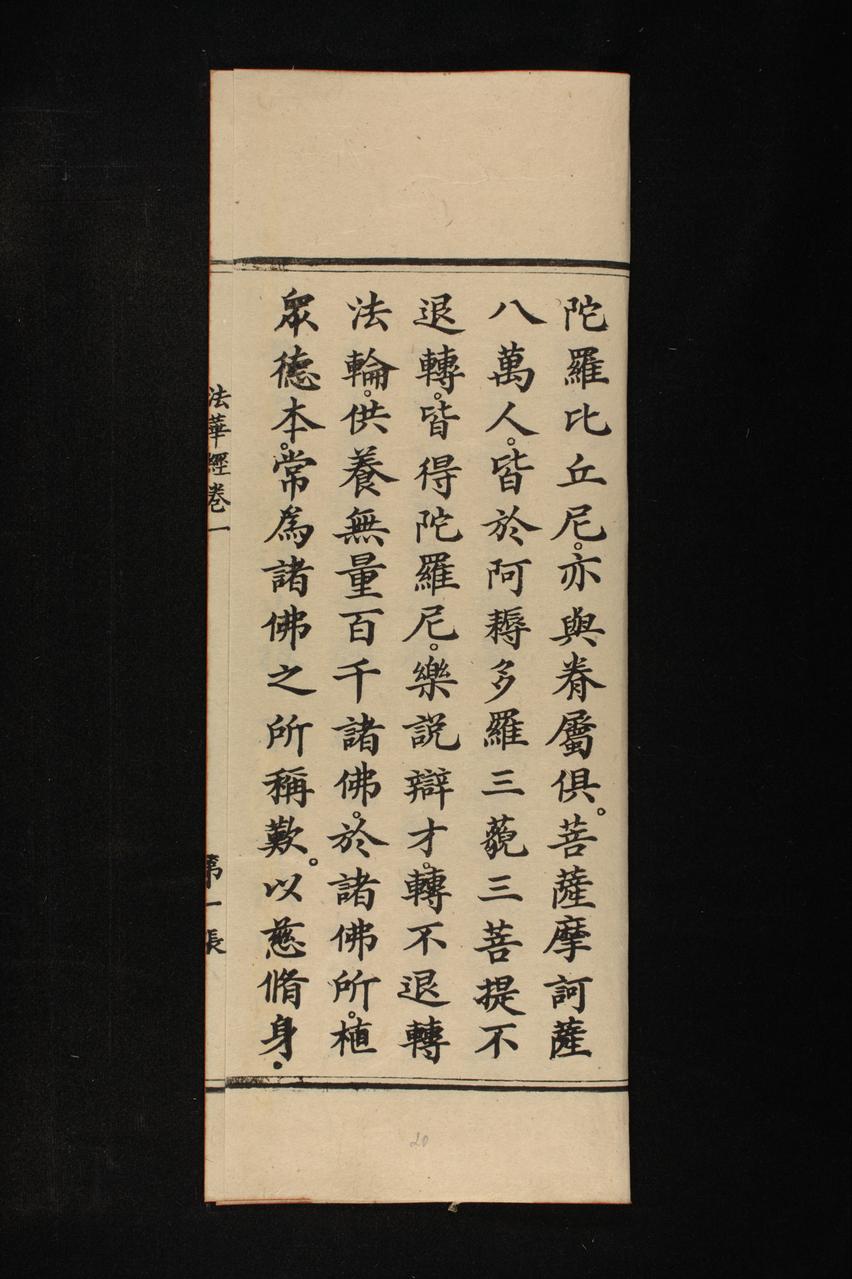 陀羅比丘尼。亦與眷屬俱。菩薩摩訶薩
八萬人。皆於阿耨多羅三藐三菩提不
退轉。皆得陀羅尼。樂說辯才。轉不退轉
法輪。供養無量百千諸佛。於諸佛所。植
眾德本。常為諸佛之所稱歎。以慈脩身。
法華經卷一
第一張
20